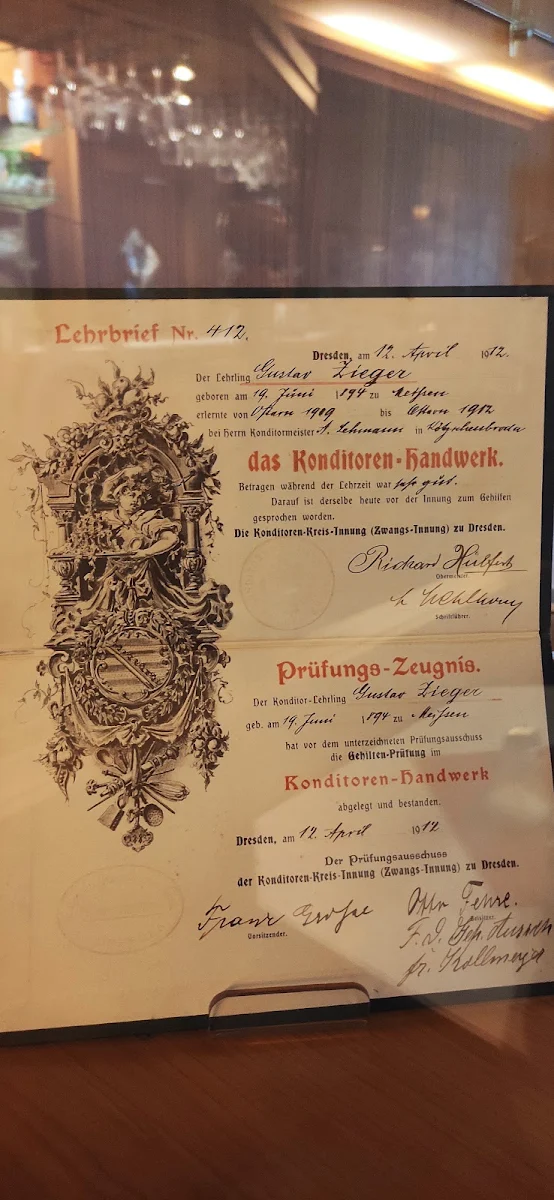 Lehrbrief Nr. 412.
Dresden, am 12. April 1912.
Der Lehrling Gustav Zieger
geboren am 19. Juni 1894 zu Meißen
erlernte von Ostern 1909 bis Ostern 1912
bei Herrn Konditormeister A. Lehmann in Kötzschenbroda
das Konditoren-Handwerk.
Betragen während der Lehrzeit war sehr gut.
Darauf ist derselbe heute vor der Innung zum Gehilfen
gesprochen worden.
Die Konditoren-Kreis-Innung (Zwangs-Innung) zu Dresden.
Richard Hülfert
Obermeister.
Schriftführer.
Prüfungs-Zeugnis.
Der Konditor-Lehrling Gustav Zieger
geb. am 19. Juni 1894 zu Meißen
hat vor dem unterzeichneten Prüfungsausschuss
die Gehilfen-Prüfung im
Konditoren-Handwerk
abgelegt und bestanden.
Dresden, am 12. April 1912
Der Prüfungsausschuss
der Konditoren-Kreis-Innung (Zwangs-Innung) zu Dresden.
Franz Große
Vorsitzender.
Otto Fehre.
Beisitzer.